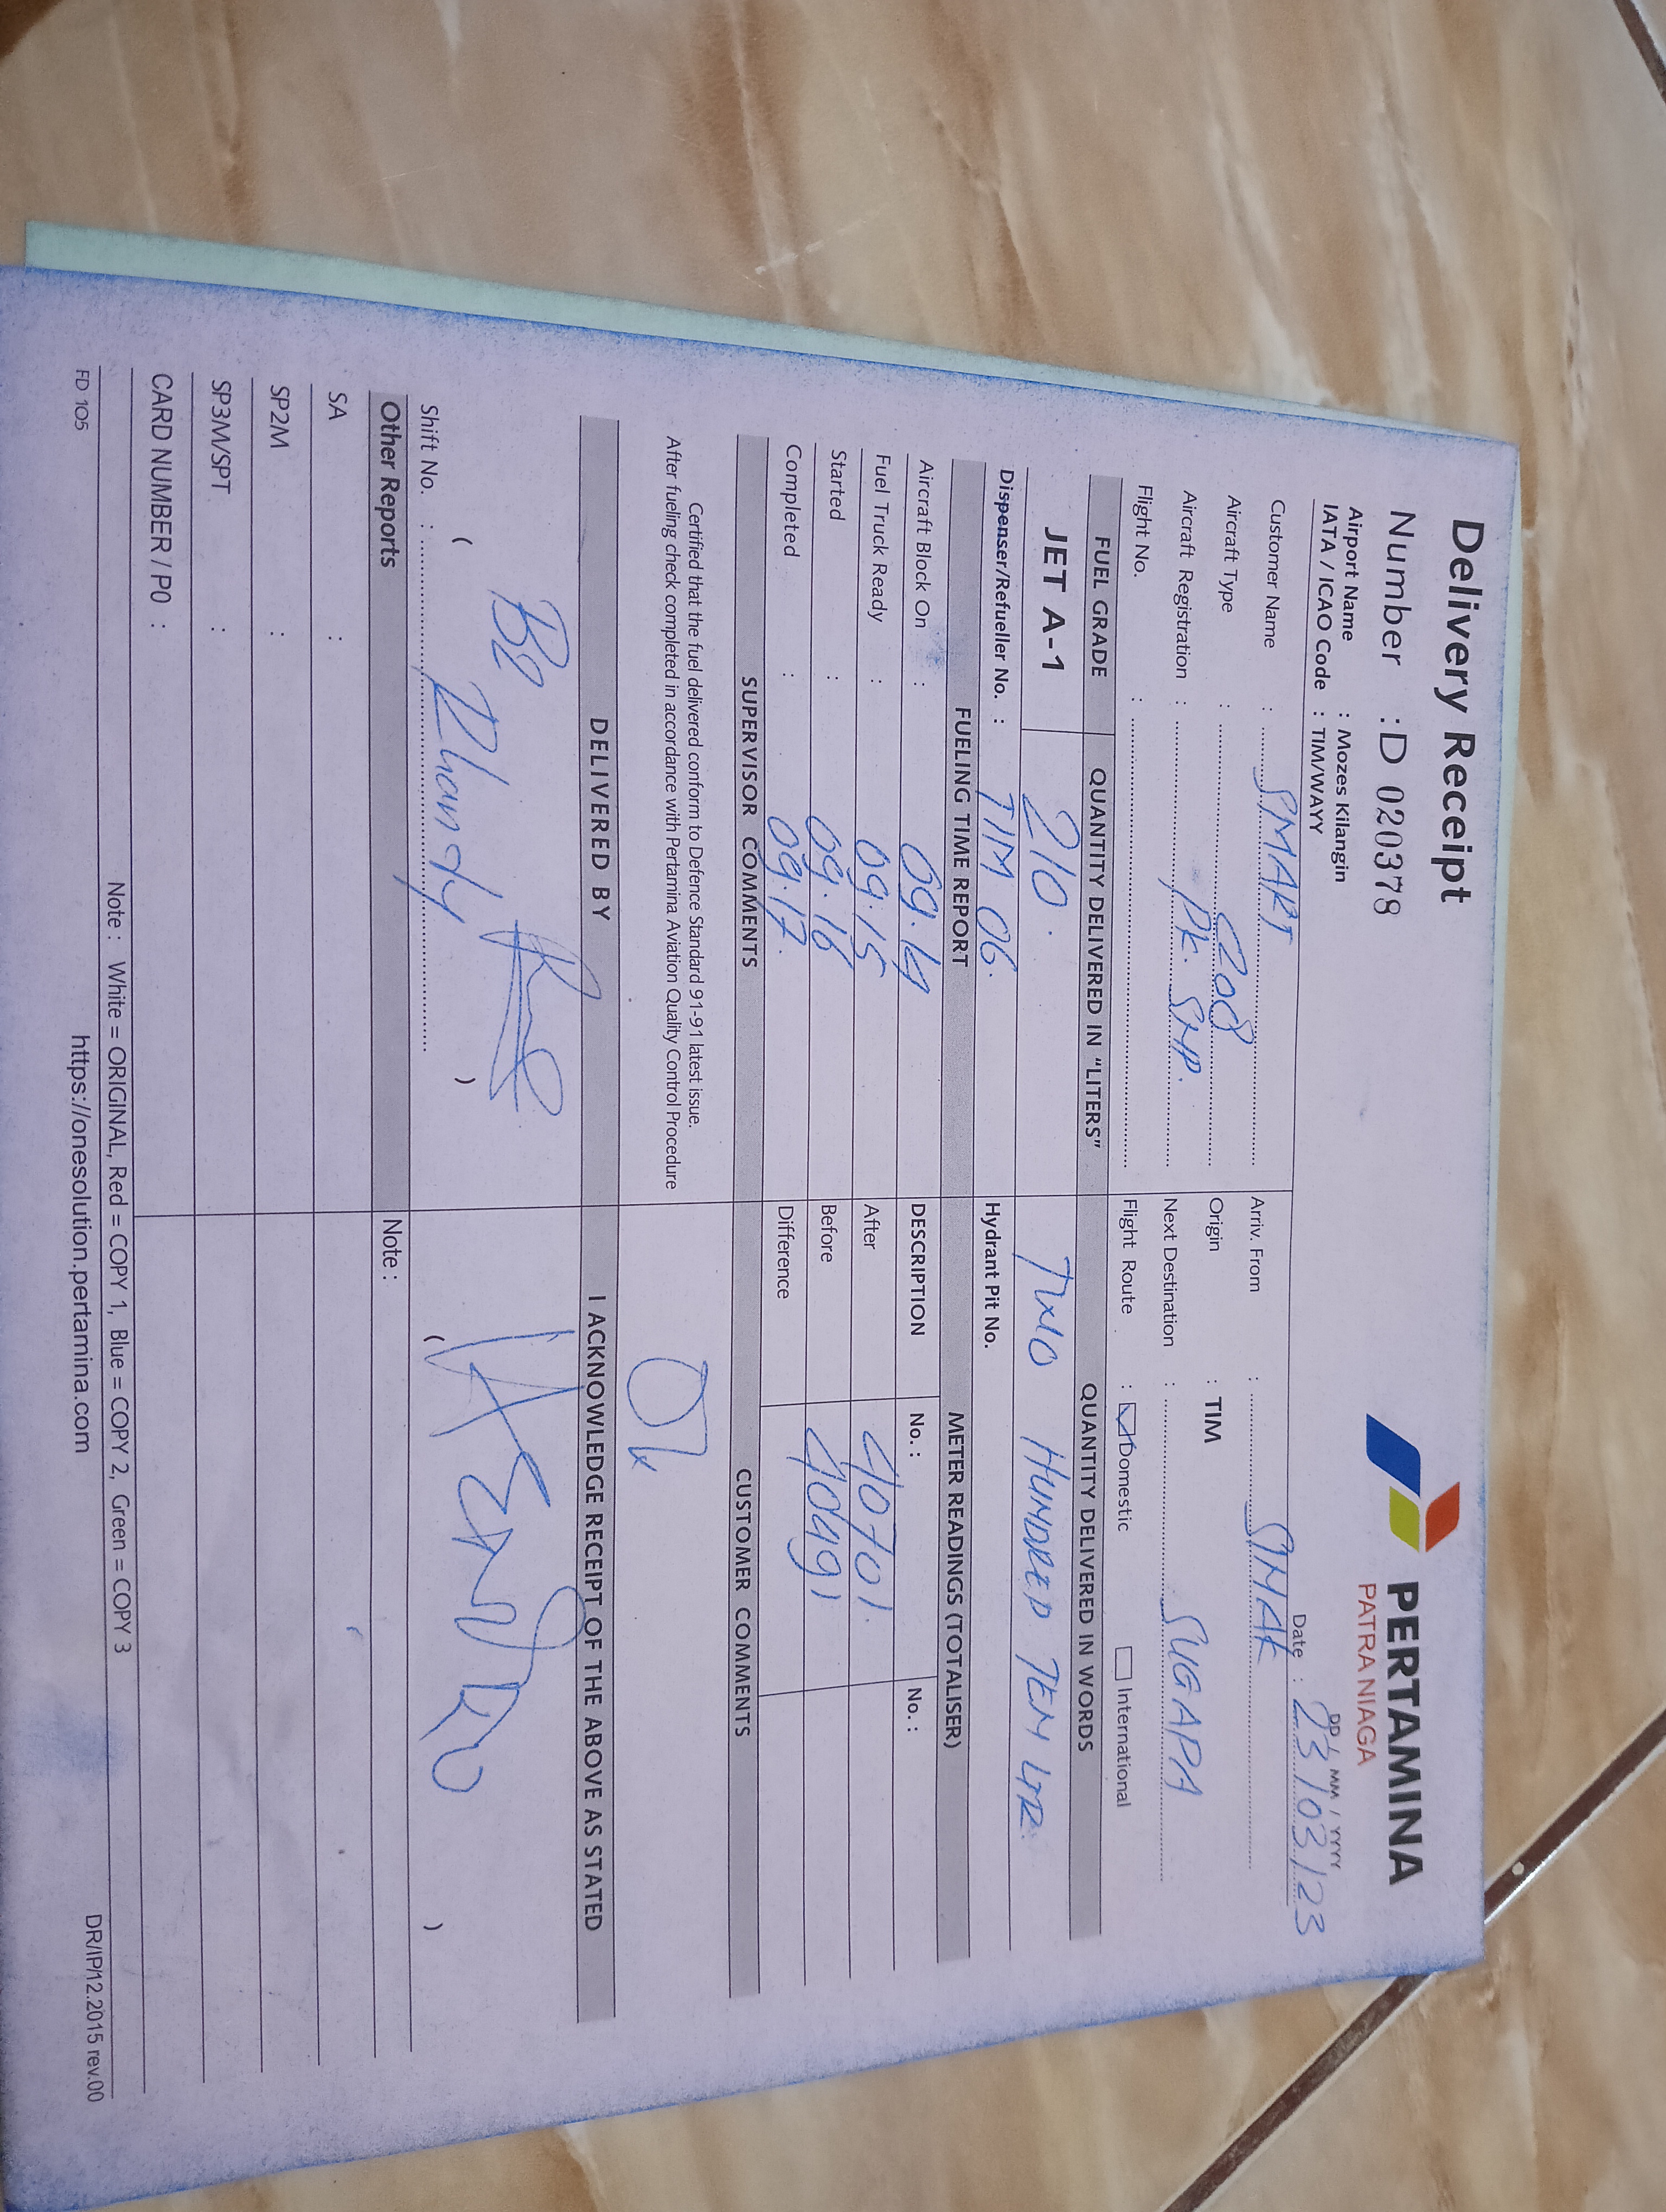 Delivery Receipt
PERTAMINA
PATRA NIAGA
Number : D 020378
Airport Name : Mozes Kilangin
IATA / ICAO Code : TIM/WAYY
DD / MM / YYYY
Date : 23/03/23
Customer Name : SMART
Arriv. From :
Aircraft Type : C208
Origin : TIM
Aircraft Registration : PK. SNP.
Next Destination : SUGAPA
Flight No. :
Flight Route : Domestic International
FUEL GRADE QUANTITY DELIVERED IN "LITERS" QUANTITY DELIVERED IN WORDS
JET A-1 210. TWO HUNDRED TEN LTR.
Dispenser/Refueller No. : TIM 06. Hydrant Pit No.
FUELING TIME REPORT METER READINGS (TOTALISER)
Aircraft Block On : 09.14 DESCRIPTION No. : No. :
Fuel Truck Ready : 09.15 After 40701.
Started : 09.16 Before 40491
Completed : 09.17. Difference
SUPERVISOR COMMENTS CUSTOMER COMMENTS
Certified that the fuel delivered conform to Defence Standard 91-91 latest issue.
After fueling check completed in accordance with Pertamina Aviation Quality Control Procedure
Ok
DELIVERED BY I ACKNOWLEDGE RECEIPT OF THE ABOVE AS STATED
( Dhandy )
( HENDRO )
Shift No. :
Other Reports Note :
SA :
SP2M :
SP3M/SPT :
CARD NUMBER / PO :
Note : White = ORIGINAL, Red = COPY 1, Blue = COPY 2, Green = COPY 3
FD 105 https://onesolution.pertamina.com DR/IP/12.2015 rev.00